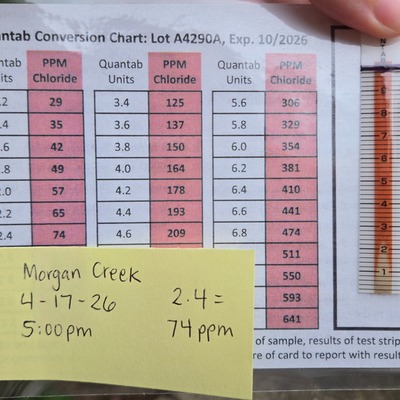 ntab Conversion Chart: Lot A4290A, Exp. 10/2026
ntab Units PPM Chloride Quantab Units PPM Chloride Quantab Units PPM Chloride
.2 29 3.4 125 5.6 306
.4 35 3.6 137 5.8 329
.6 42 3.8 150 6.0 354
.8 49 4.0 164 6.2 381
.0 57 4.2 178 6.4 410
2.2 65 4.4 193 6.6 441
2.4 74 4.6 209 6.8 474
511
550
593
641
Morgan Creek
4-17-26 2.4 =
5:00pm 74 ppm
of sample, results of test strip
re of card to report with result
9
8
7
6
5
4
3
2
1